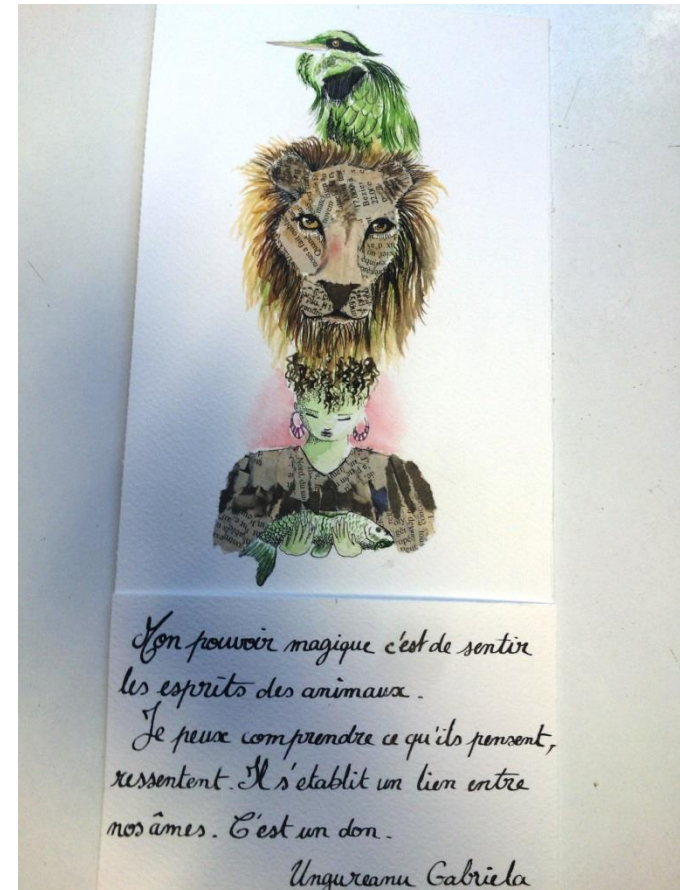 Mon pouvoir magique c'est de sentir
les esprits des animaux.
Je peux comprendre ce qu'ils pensent,
ressentent. Il s'etablit un lien entre
nos âmes. C'est un don.
Ungureanu Gabriela